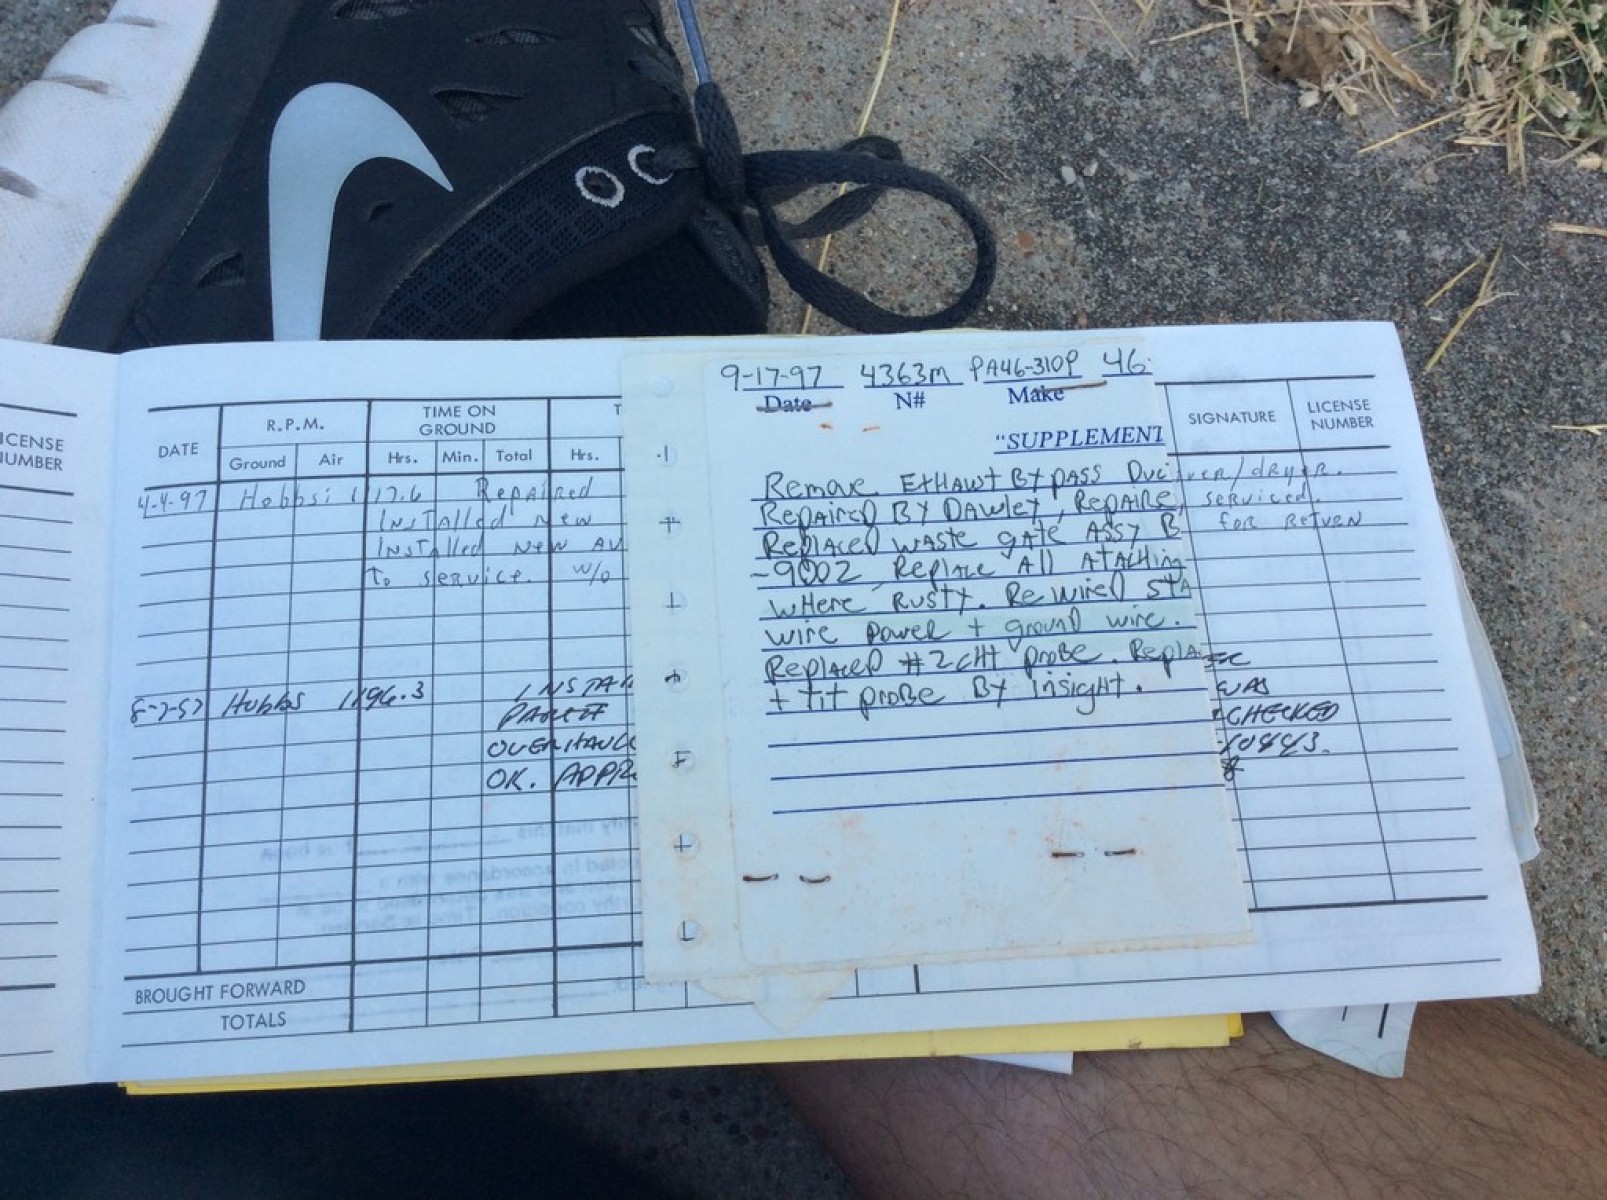 LICENSE
NUMBER
DATE
R.P.M.
TIME ON
GROUND
Ground
Air
Hrs.
Min.
Total
Hrs.
SIGNATURE
LICENSE
NUMBER
4-4-97 Hobbs: 1117.6 Repaired
Installed New
Installed New
To service. W/O
8-7-97 Hobbs 1196.3
OK.
9-17-97 4363m PA46-310P 46
Date N# Make
"SUPPLEMENT
Remove Exhaust Bypass Duc
Repaired By Dawley, Repaire
Replaced waste gate Assy B
-9002, Replace All Ataching
where Rusty. Rewired STA
wire power + ground wire.
Replaced #2 CHT probe. Repla
+ tit probe By insight.
ver/dryer.
serviced.
for Return
WAS
CHECKED
10443.
BROUGHT FORWARD
TOTALS